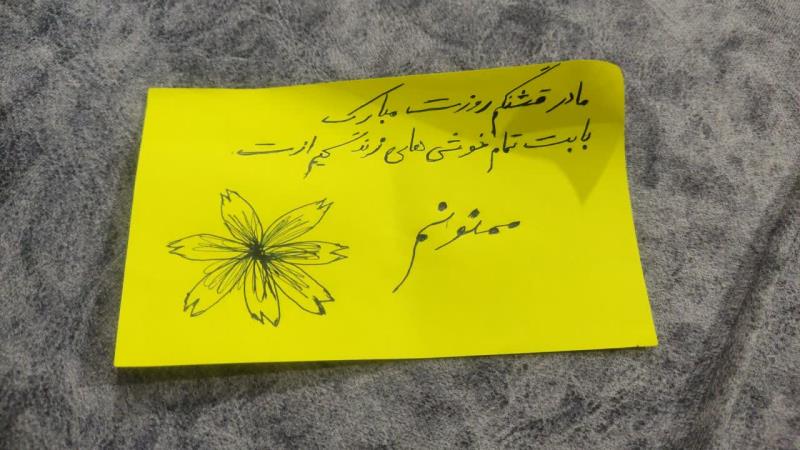 مادر قشنگم روزت مبارک
بابت تمام خوشی های زندگیم ازت
ممنونم